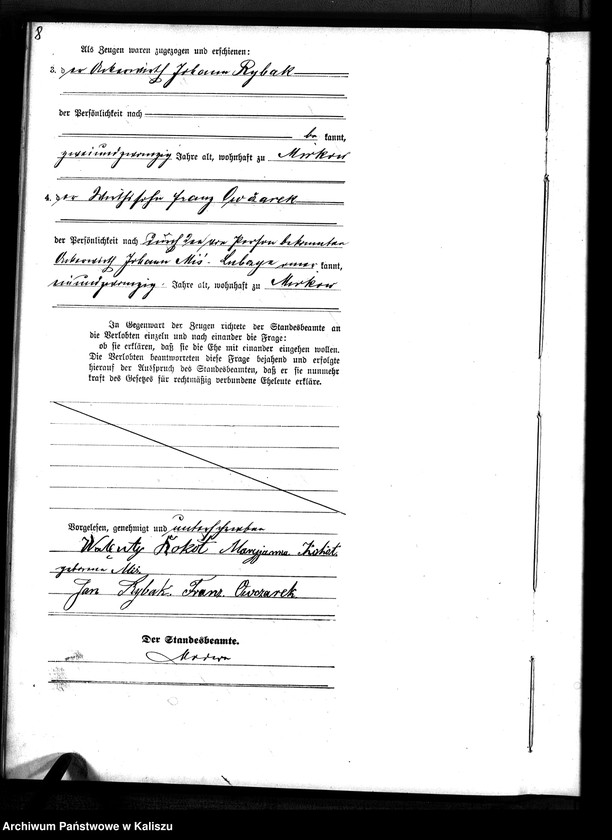 8
Als Zeugen waren zugezogen und erschienen:
3. der Ackerwirth Johann Rybak
der Persönlichkeit nach
be kannt,
zweiundzwanzig Jahre alt, wohnhaft zu Mirkow
4. der Wirthssohn Franz Owczarek
der Persönlichkeit nach durch den von Person bekannten
Ackerwirth Johann Miś- kannt,
einundzwanzig Jahre alt, wohnhaft zu Mirkow
In Gegenwart der Zeugen richtete der Standesbeamte an
die Verlobten einzeln und nach einander die Frage:
ob sie erklären, daß sie die Ehe mit einander eingehen wollen.
Die Verlobten beantworteten diese Frage bejahend und erfolgte
hierauf der Ausspruch des Standesbeamten, daß er sie nunmehr
kraft des Gesetzes für rechtmäßig verbundene Eheleute erkläre.
Vorgelesen, genehmigt und unterschrieben
Walenty Kokot Maryjanna Kokot
geborene Miś
Jan Rybak. Franz Owczarek
Der Standesbeamte.
Archiwum Państwowe w Kaliszu